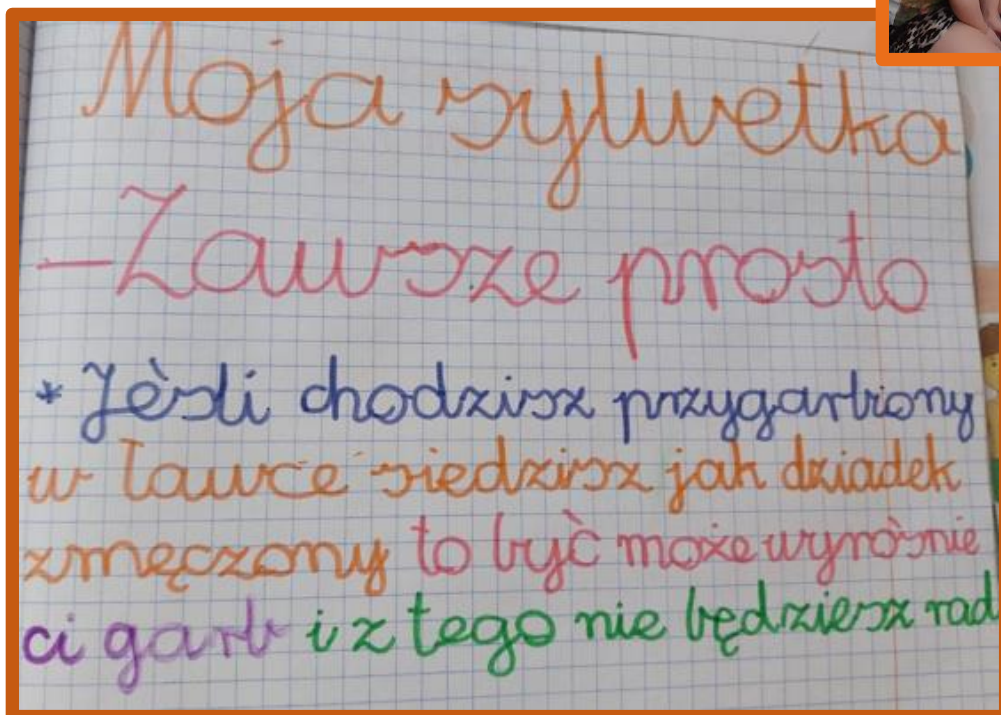 Moja sylwetka
-Zawsze prosto
* Jèsli chodzisz przygarbiony
w ławce siedzisz jak dziadek
zmęczony to być może wyròsnie
ci garb i z tego nie będziesz rad